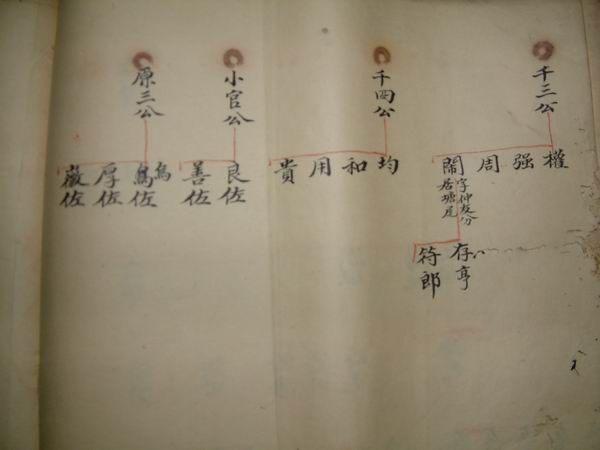 千三公
權
强
周
閙
字仲友分
居塘尾
存亨
符郎
千四公
均
和
用
貴
小官公
良佐
善佐
原三公
佐
厚佐
嚴佐